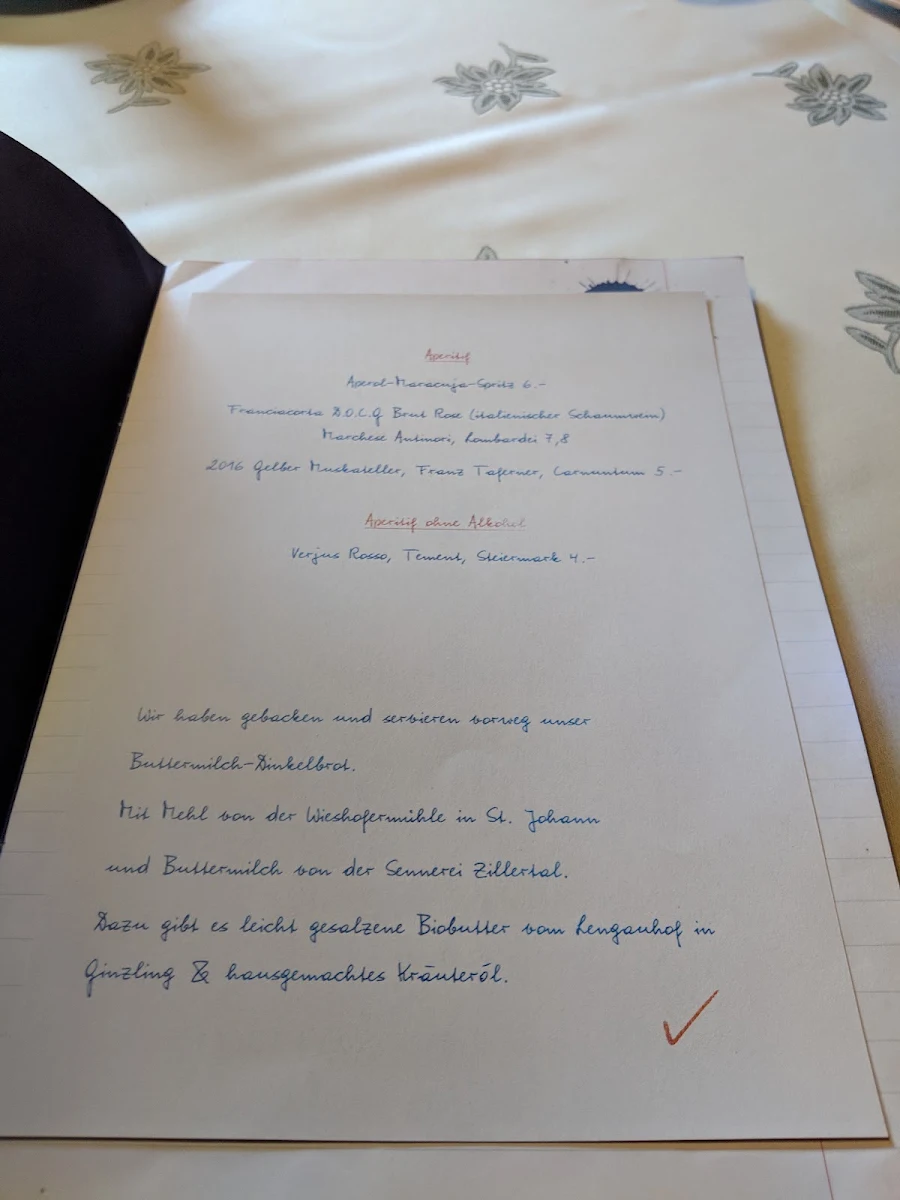 Aperitif
Aperol-Maracuja-Spritz 6.-
Franciacorta D.O.C.G Brut Rose (italienischer Schaumwein)
Marchese Antinori, Lombardei 7,8
2016 Gelber Muskateller, Franz Taferner, Carnuntum 5.-
Aperitif ohne Alkohol
Verjus Rosso, Tement, Steiermark 4.-
Wir haben gebacken und servieren vorweg unser
Buttermilch-Dinkelbrot.
Mit Mehl von der Wieshofermühle in St. Johann
und Buttermilch von der Sennerei Zillertal.
Dazu gibt es leicht gesalzene Biobutter vom Lenganhof in
Ginzling & hausgemachtes Kräuteröl.